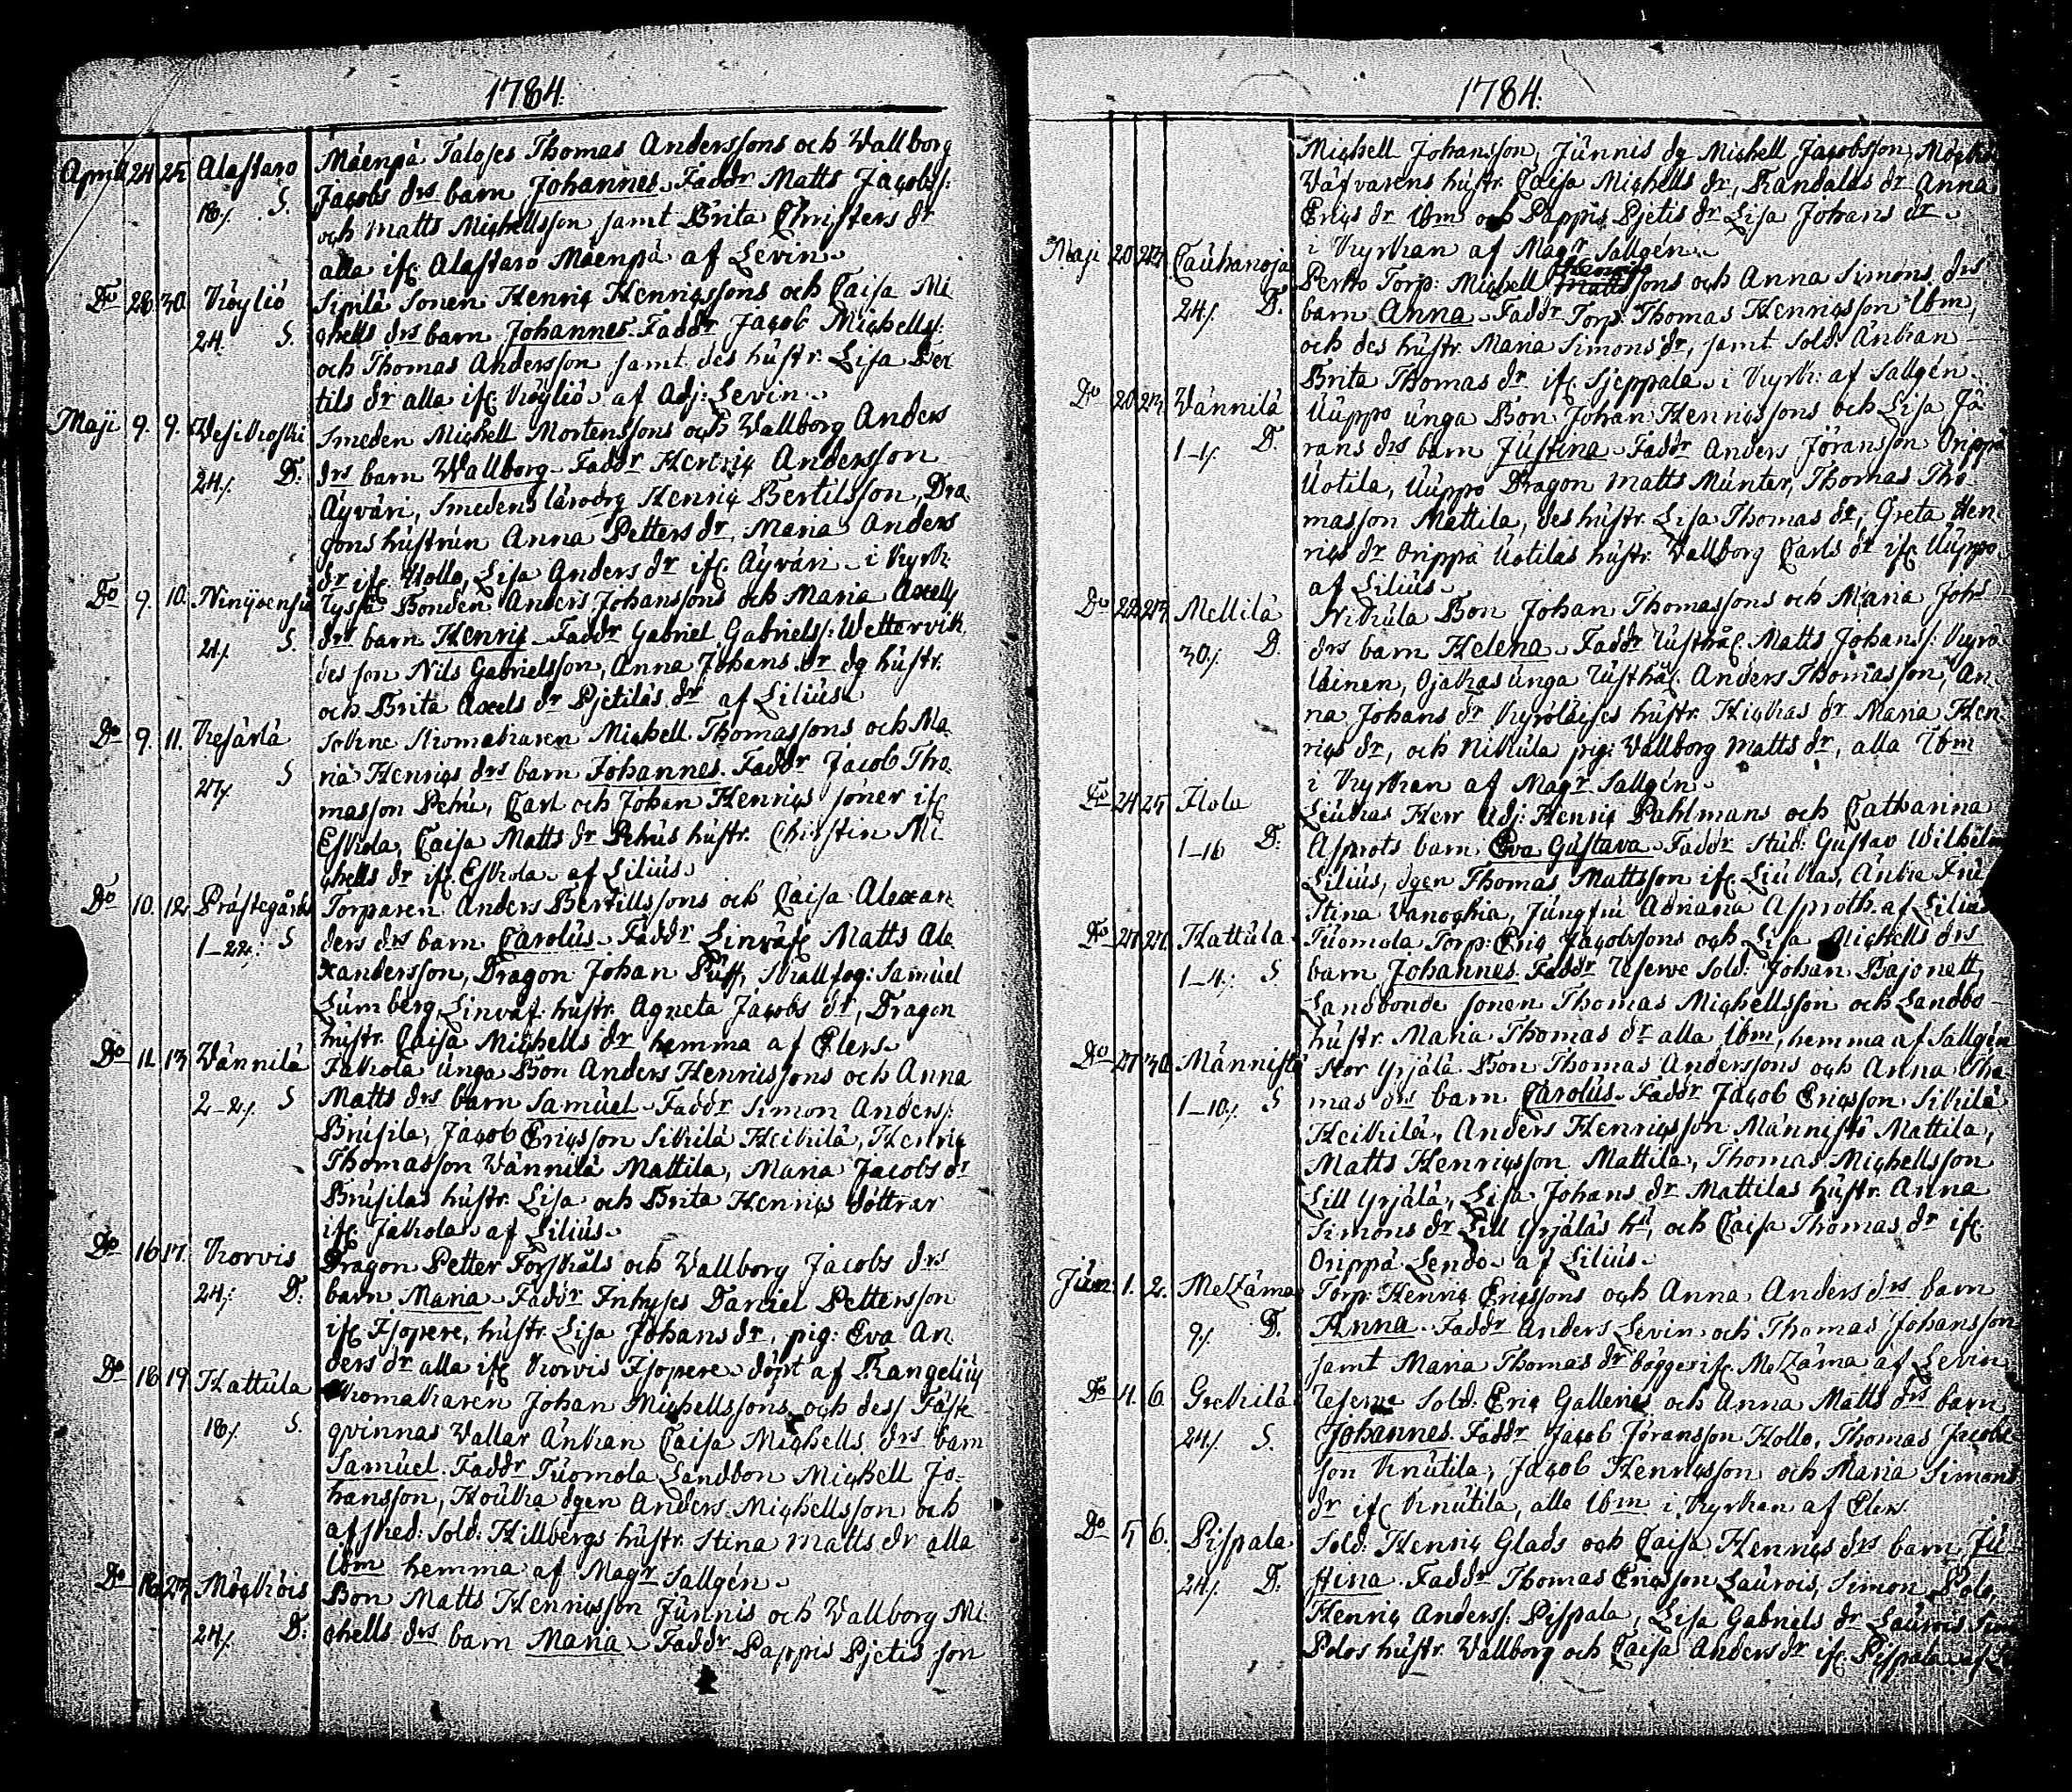 1784.
April 24 25 Alastaro Mäenpä Taloses Thomas Anderssons och Wallborg
18/. S. Jacobs drs barn Johannes. Faddr Matts Jacobss:
och Matts Michellsson samt Brita Christers dr
alla ifr. Alastaro Mäenpä af Levin.
Do 28. 30. Köyliö Sipilä Sonen Henric Henricssons och Caisa Mi
24. S. chells drs barn Johannes. Faddr Jacob Michellss:
och Thomas Andersson samt des hustr. Lisa Ber
tils dr alla ifr. Köyliö af Adj: Levin.
Maji 9. 9. Wesikoski Smeden Michell Mortenssons och Wallborg Anders
24/. D. drs barn Wallborg. Faddr Henric Andersson
Äyväri, Smedens Henric Bertilsson, Dra
gons hustrun Anna Petters dr, Maria Anders
dr ifr. Hollo, Lisa Anders dr ifr. Äyväri i Kyrk:
Do 9. 10. Ninijoensuu Bonden Anders Johanssons och Maria Axells
21/. S. drs barn Henric. Faddr Gabriel Gabrielss: Wettervik
des son Nils Gabrielsson, Anna Johans dr dg hustr.
och Brita Axels dr Pjetiläs dr af Lilius.
Do 9. 11. Kesärlä Sokne Kromakaren Michell Thomassons och Ma
27/. S ria Henrics drs barn Johannes. Faddr Jacob Tho
masson Pehu, Carl och Johan Henrics söner ifr
Eskola, Caisa Matts dr Pehus hustr. Christin Mi
chells dr ifr. Eskola af Lilius.
Do 10. 12 Prästegårds Torparen Anders Bertillssons och Caisa Alexan
1-22/: S ders drs barn Carolus. Faddr Linväf: Matts Ale
xandersson, Dragon Johan Puff, Skallfog: Samuel
Lumberg, Linväf: hustr. Agneta Jacobs dr, Dragon
hustr. Caisa Michells dr hemma af Elers.
Do 11. 13 Vännilä Jakola unga Bon Anders Henricssons och Anna
2-2/. S Matts drs barn Samuel. Faddr Simon Anderss:
Brusila, Jacob Ericsson Sikilä Heikilä, Henric
Thomasson Vännilä Mattila, Maria Jacobs dr
Brusilas hustr. Lisa och Brita Henrics döttrar
ifr. Jakola af Lilius.
Do 16 17. Korvis Dragon Petter Forskåls och Wallborg Jacobs drs
24/: D: barn Maria. Faddr Inhyses Daniel Pettersson
ifr. Isopere, hustr. Lisa Johans dr, pig: Eva An
ders dr alla ifr. Korvis Isopere döpt af Frangelius
Do 18 19 Hattula Kromakaren Johan Michellssons och dess Fäste
18/. S. qvinnas Vallar Änkan Caisa Michells drs barn
Samuel. Faddr Tuomola Landbon Michell Jo=
hansson, Houkka dgen Anders Michellsson och
afsked: Sold: Hillbergs hustr. Stina Matts dr alla
ibm hemma af Magr Sallgén.
Do 18 23 Möckköis Bon Matts Henricsson Junnis och Vallborg Mi:
24/. D: chells drs barn Maria. Faddr Pappis Pjetis son
1784.
Michell Johansson, Junnis dg Michell Jacobsson, Möckö
Väfvarens hustr. Caisa Michells dr, Randalas dr Anna
Erics dr ibm och Pappis Pjetis dr Lisa Johans dr.
i Kyrkan af Magr Sallgén.
Maji 20 23 Cauhanoja Pertto Torp: Michell Henrics sons och Anna Simons drs
24/. D. barn Anna. Faddr Torp. Thomas Henricsson ibm,
och des hustr. Maria Simons dr, samt Sold: Änkan
Brita Thomas dr ifr. Sjeppala i Kyrk: af Sallgén.
Do 20 23 Vännilä Uuppo unga Bon Johan Henricssons och Lisa Jö
1-1/. D. rans drs barn Justina. Faddr Anders Jöransson Orippä
Uotila, Uuppo Dragon Matts Munter, Thomas Tho
masson Mattila, des hustr. Lisa Thomas dr, Greta Hen
rics dr Orippä Uotilas hustr. Wallborg Carls dr ifr. Uuppo
af Lilius.
Do 22 23. Mellilä Nikula Bon Johan Thomassons och Maria Johs
30/. D. drs barn Helena. Faddr Rusthål. Matts Johanss: Kyrö
läinen, Ojakas unga Rusthål. Anders Thomasson, An
na Johans dr Kyröläises hustr. Kickas dr Maria Hen
rics dr, och Nikula pig: Vallborg Matts dr, alla ibm
i Kyrkan af Magr Sallgén.
Do 24 25 Ilola Liukas Herr Adj: Henric Pahlmans och Catharina
1-16 D: Asprots barn Eva Gustava. Faddr Stud: Gustav Wilhelm
Lilius, dgen Thomas Mattsson ifr. Liukas, Änke Fru
Stina Vanochia, Jungfru Adriana Asproth. af Lilius
Do 21 21. Hattula Tuomola Torp: Eric Jacobssons och Lisa Michells drs
1-4/. S. barn Johannes. Faddr Reserve Sold: Johan Bajonett,
Landbonde sonen Thomas Michellsson och Landbo
hustr. Maria Thomas dr alla ibm, hemma af Sallgén
Do 27 30. Männistö Stor Yrjälä Bon Thomas Anderssons och Anna Tho
1-10/. S mas drs barn Carolus. Faddr Jacob Ericsson Sikilä
Heikilä, Anders Henricsson Männistö Mattila,
Matts Henricsson Mattila, Thomas Michellsson
Lill Yrjälä, Lisa Johans dr Mattilas hustr. Anna
Simons dr Lill Yrjäläs hu, och Caisa Thomas dr ifr.
Orippä Lendo af Lilius.
Jun: 1. 2. Meltzäma Torp: Henric Ericssons och Anna Anders drs barn
9/. D. Anna. Faddr Anders Levin och Thomas Johansson
samt Maria Thomas dr bägge ifr. Meltzäma af Levin
Do 4. 6. Grekilä Reserve Sold: Eric Galleries och Anna Matts drs barn
24/. S. Johannes. Faddr Jacob Jöransson Hollo, Thomas Jacobs
son Knutila, Jacob Henricsson och Maria Simons
dr ifr. Knutila, alla ibm i Kyrkan af Elers.
Do 5 6. Pispala Sold: Henric Glads och Caisa Henrics drs barn Ju
24/. D. stina. Faddr Thomas Ericsson Laurois, Simon Polo,
Henric Anderss: Pispala, Lisa Gabriels dr Laurois
Polos hustr. Wallborg och Caisa Anders dr ifr. Pispala af